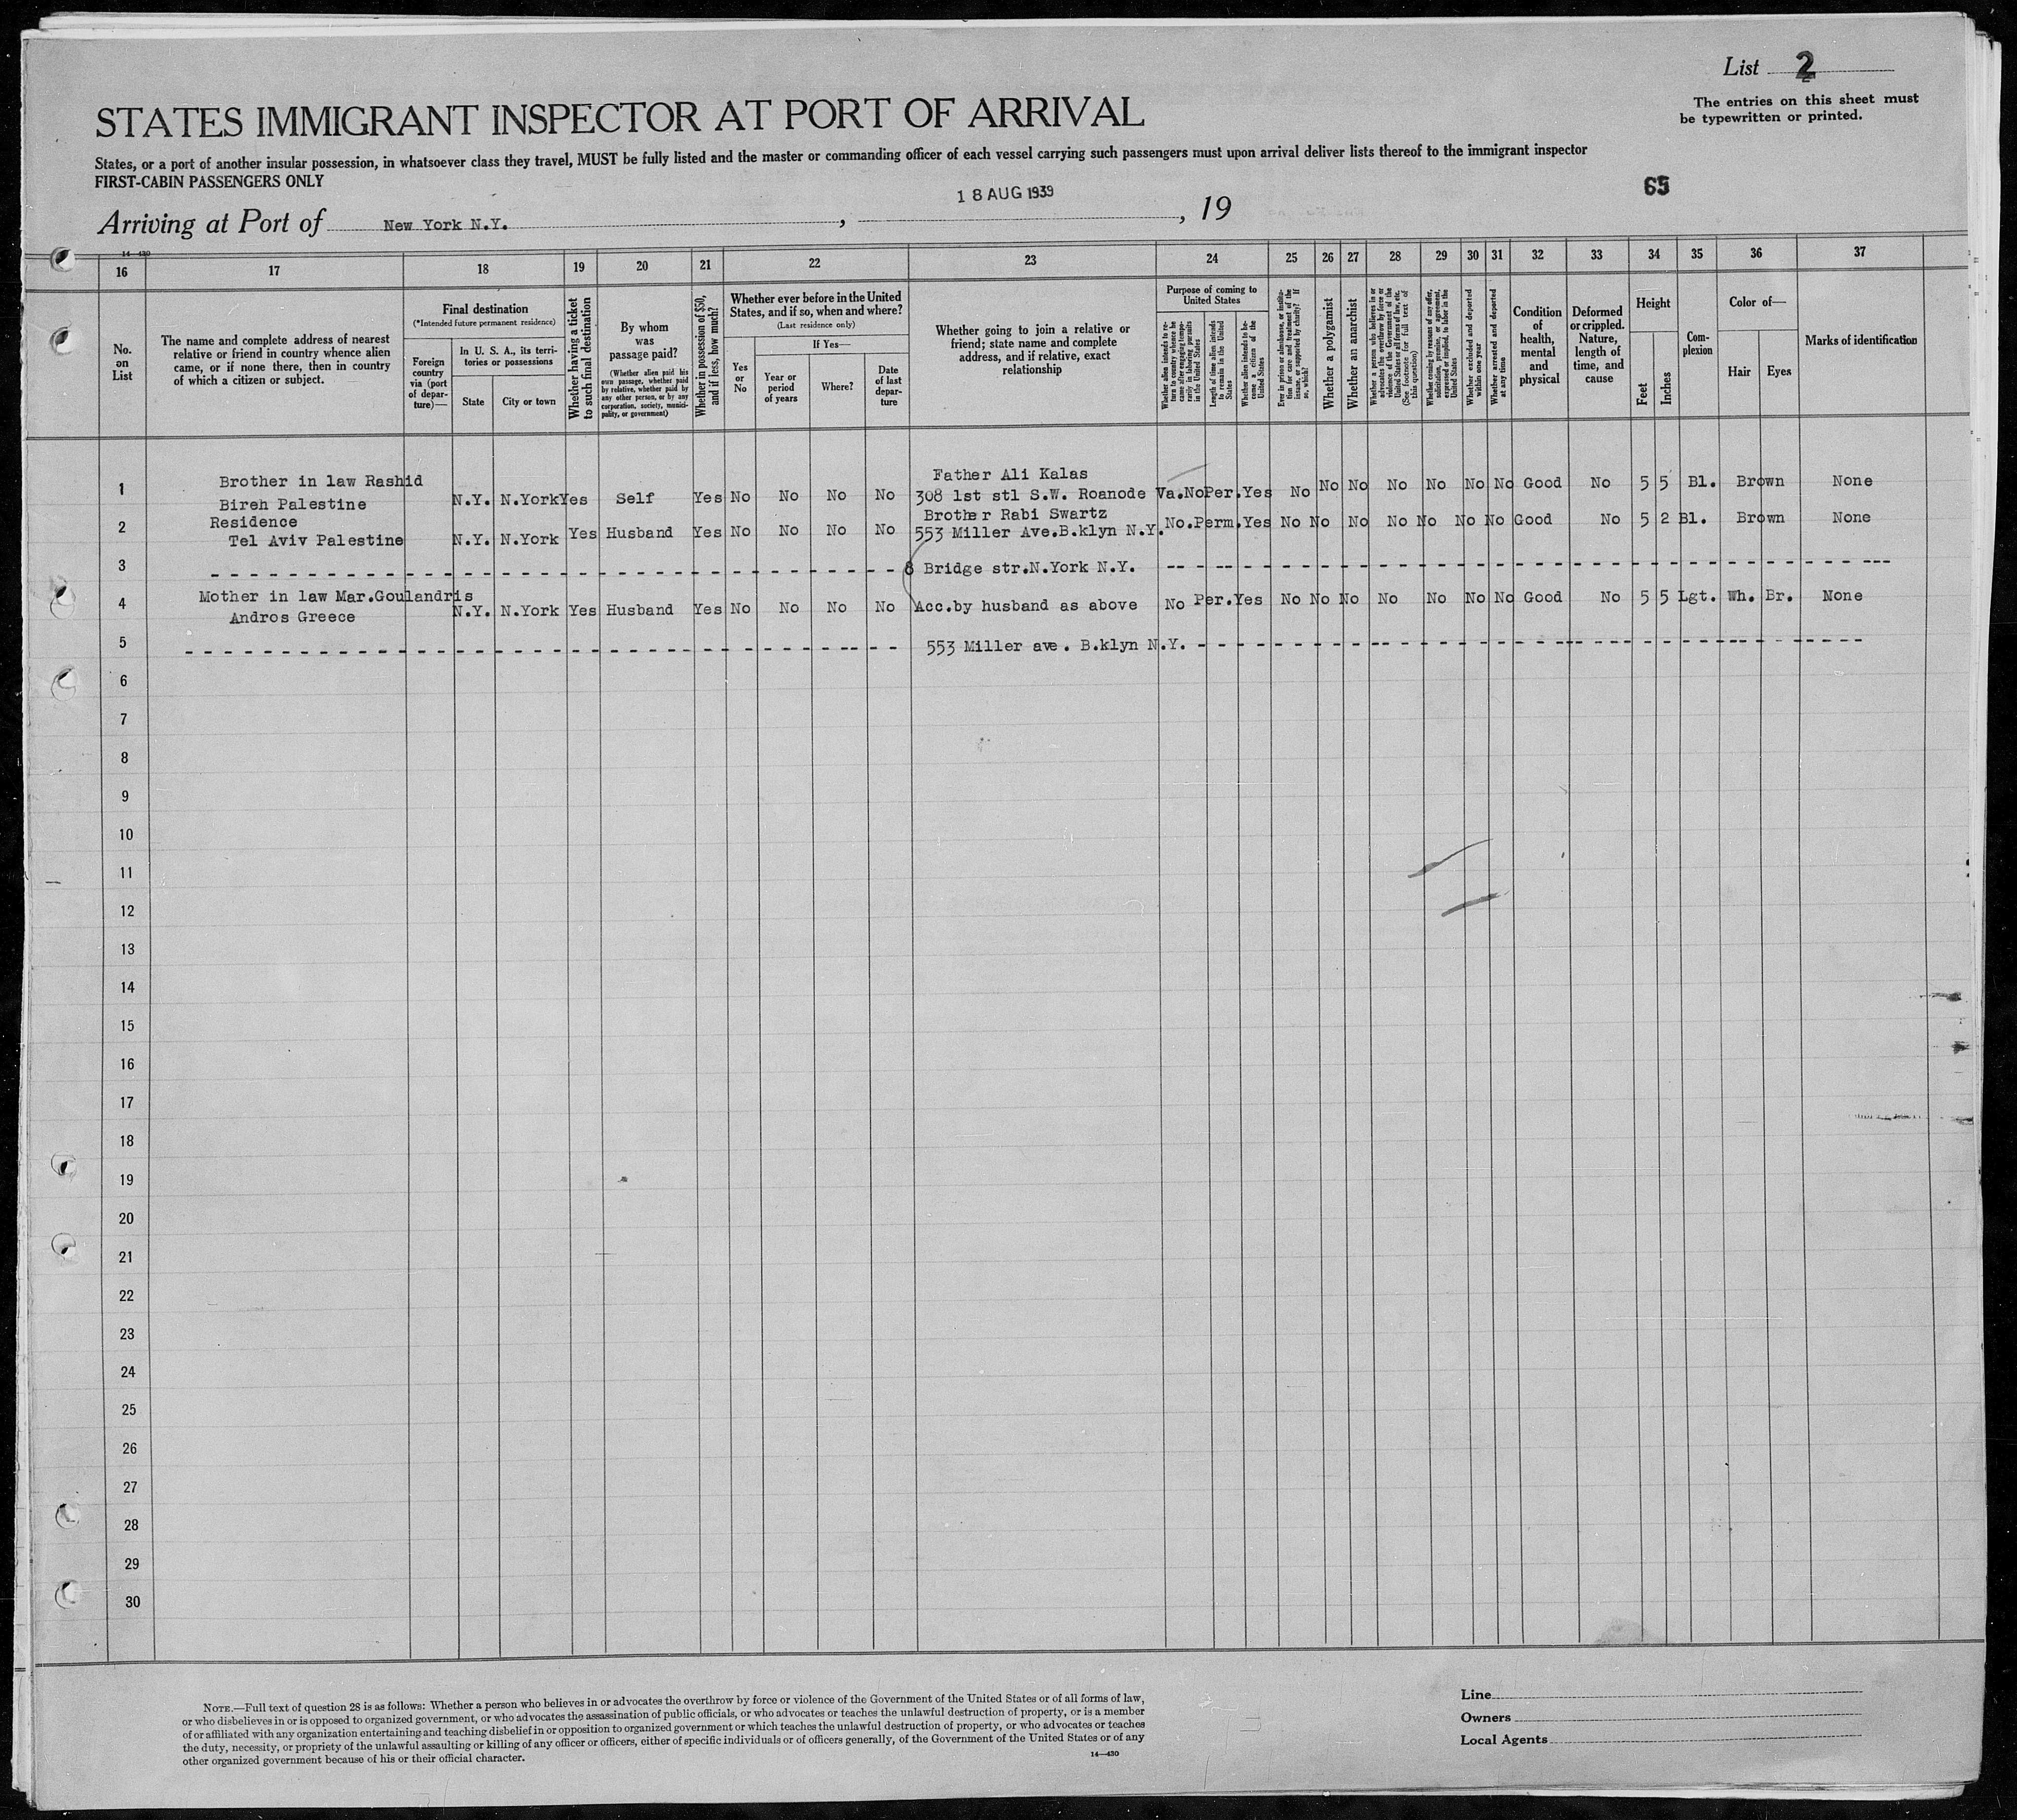 List 2
The entries on this sheet must
be typewritten or printed.
STATES IMMIGRANT INSPECTOR AT PORT OF ARRIVAL
States, or a port of another insular possession, in whatsoever class they travel, MUST be fully listed and the master or commanding officer of each vessel carrying such passengers must upon arrival deliver lists thereof to the immigrant inspector
FIRST-CABIN PASSENGERS ONLY
65
Arriving at Port of New York N.Y. , 18 AUG 1939 , 19
14—430
16 17 18 19 20 21 22 23 24 25 26 27 28 29 30 31 32 33 34 35 36 37
No.
on
List
The name and complete address of nearest
relative or friend in country whence alien
came, or if none there, then in country
of which a citizen or subject.
Final destination
(*Intended future permanent residence)
Foreign
country
via (port
of depar-
ture)—
In U. S. A., its terri-
tories or possessions
State
City or town
Whether having a ticket
to such final destination
By whom
was
passage paid?
(Whether alien paid his
own passage, whether paid
by relative, whether paid by
any other person, or by any
corporation, society, munici-
pality, or government)
Whether in possession of $50,
and if less, how much?
Whether ever before in the United
States, and if so, when and where?
(Last residence only)
Yes
or
No
If Yes—
Year or
period
of years
Where?
Date
of last
depar-
ture
Whether going to join a relative or
friend; state name and complete
address, and if relative, exact
relationship
Purpose of coming to
United States
Whether alien intends to re-
turn to country whence he
came after engaging tempo-
rarily in laboring pursuits
in the United States
Length of time alien intends
to remain in the United
States
Whether alien intends to be-
come a citizen of the
United States
Ever in prison or almshouse, or institu-
tion for care and treatment of the
insane, or supported by charity? If
so, which?
Whether a polygamist
Whether an anarchist
Whether a person who believes in or
advocates the overthrow by force or
violence of the Government of the
United States or all forms of law, etc.
(See footnote for full text of
this question)
Whether coming by reason of any offer,
solicitation, promise, or agreement,
expressed or implied, to labor in the
United States
Whether excluded and deported
within one year
Whether arrested and deported
at any time
Condition
of
health,
mental
and
physical
Deformed
or crippled.
Nature,
length of
time, and
cause
Height
Feet
Inches
Com-
plexion
Color of—
Hair
Eyes
Marks of identification
1 Brother in law Rashid
Bireh Palestine N.Y. N.York Yes Self Yes No No No No
Father Ali Kalas
308 1st stl S.W. Roanode Va. No Per. Yes No No No No No No No Good No 5 5 Bl. Brown None
2 Residence
Tel Aviv Palestine N.Y. N.York Yes Husband Yes No No No No
Brother Rabi Swartz
553 Miller Ave.B.klyn N.Y. No. Perm. Yes No No No No No No No Good No 5 2 Bl. Brown None
3 - - - - - 8 Bridge str.N.York N.Y. - - - - -
4 Mother in law Mar.Goulandris
Andros Greece N.Y. N.York Yes Husband Yes No No No No Acc.by husband as above No Per. Yes No No No No No No No Good No 5 5 Lgt. Wh. Br. None
5 - - - - - 553 Miller ave. B.klyn N.Y. - - - - -
6
7
8
9
10
11
12
13
14
15
16
17
18
19
20
21
22
23
24
25
26
27
28
29
30
NOTE.—Full text of question 28 is as follows: Whether a person who believes in or advocates the overthrow by force or violence of the Government of the United States or of all forms of law,
or who disbelieves in or is opposed to organized government, or who advocates the assassination of public officials, or who advocates or teaches the unlawful destruction of property, or is a member
of or affiliated with any organization entertaining and teaching disbelief in or opposition to organized government or which teaches the unlawful destruction of property, or who advocates or teaches
the duty, necessity, or propriety of the unlawful assaulting or killing of any officer or officers, either of specific individuals or of officers generally, of the Government of the United States or of any
other organized government because of his or their official character.
14—430
Line
Owners
Local Agents